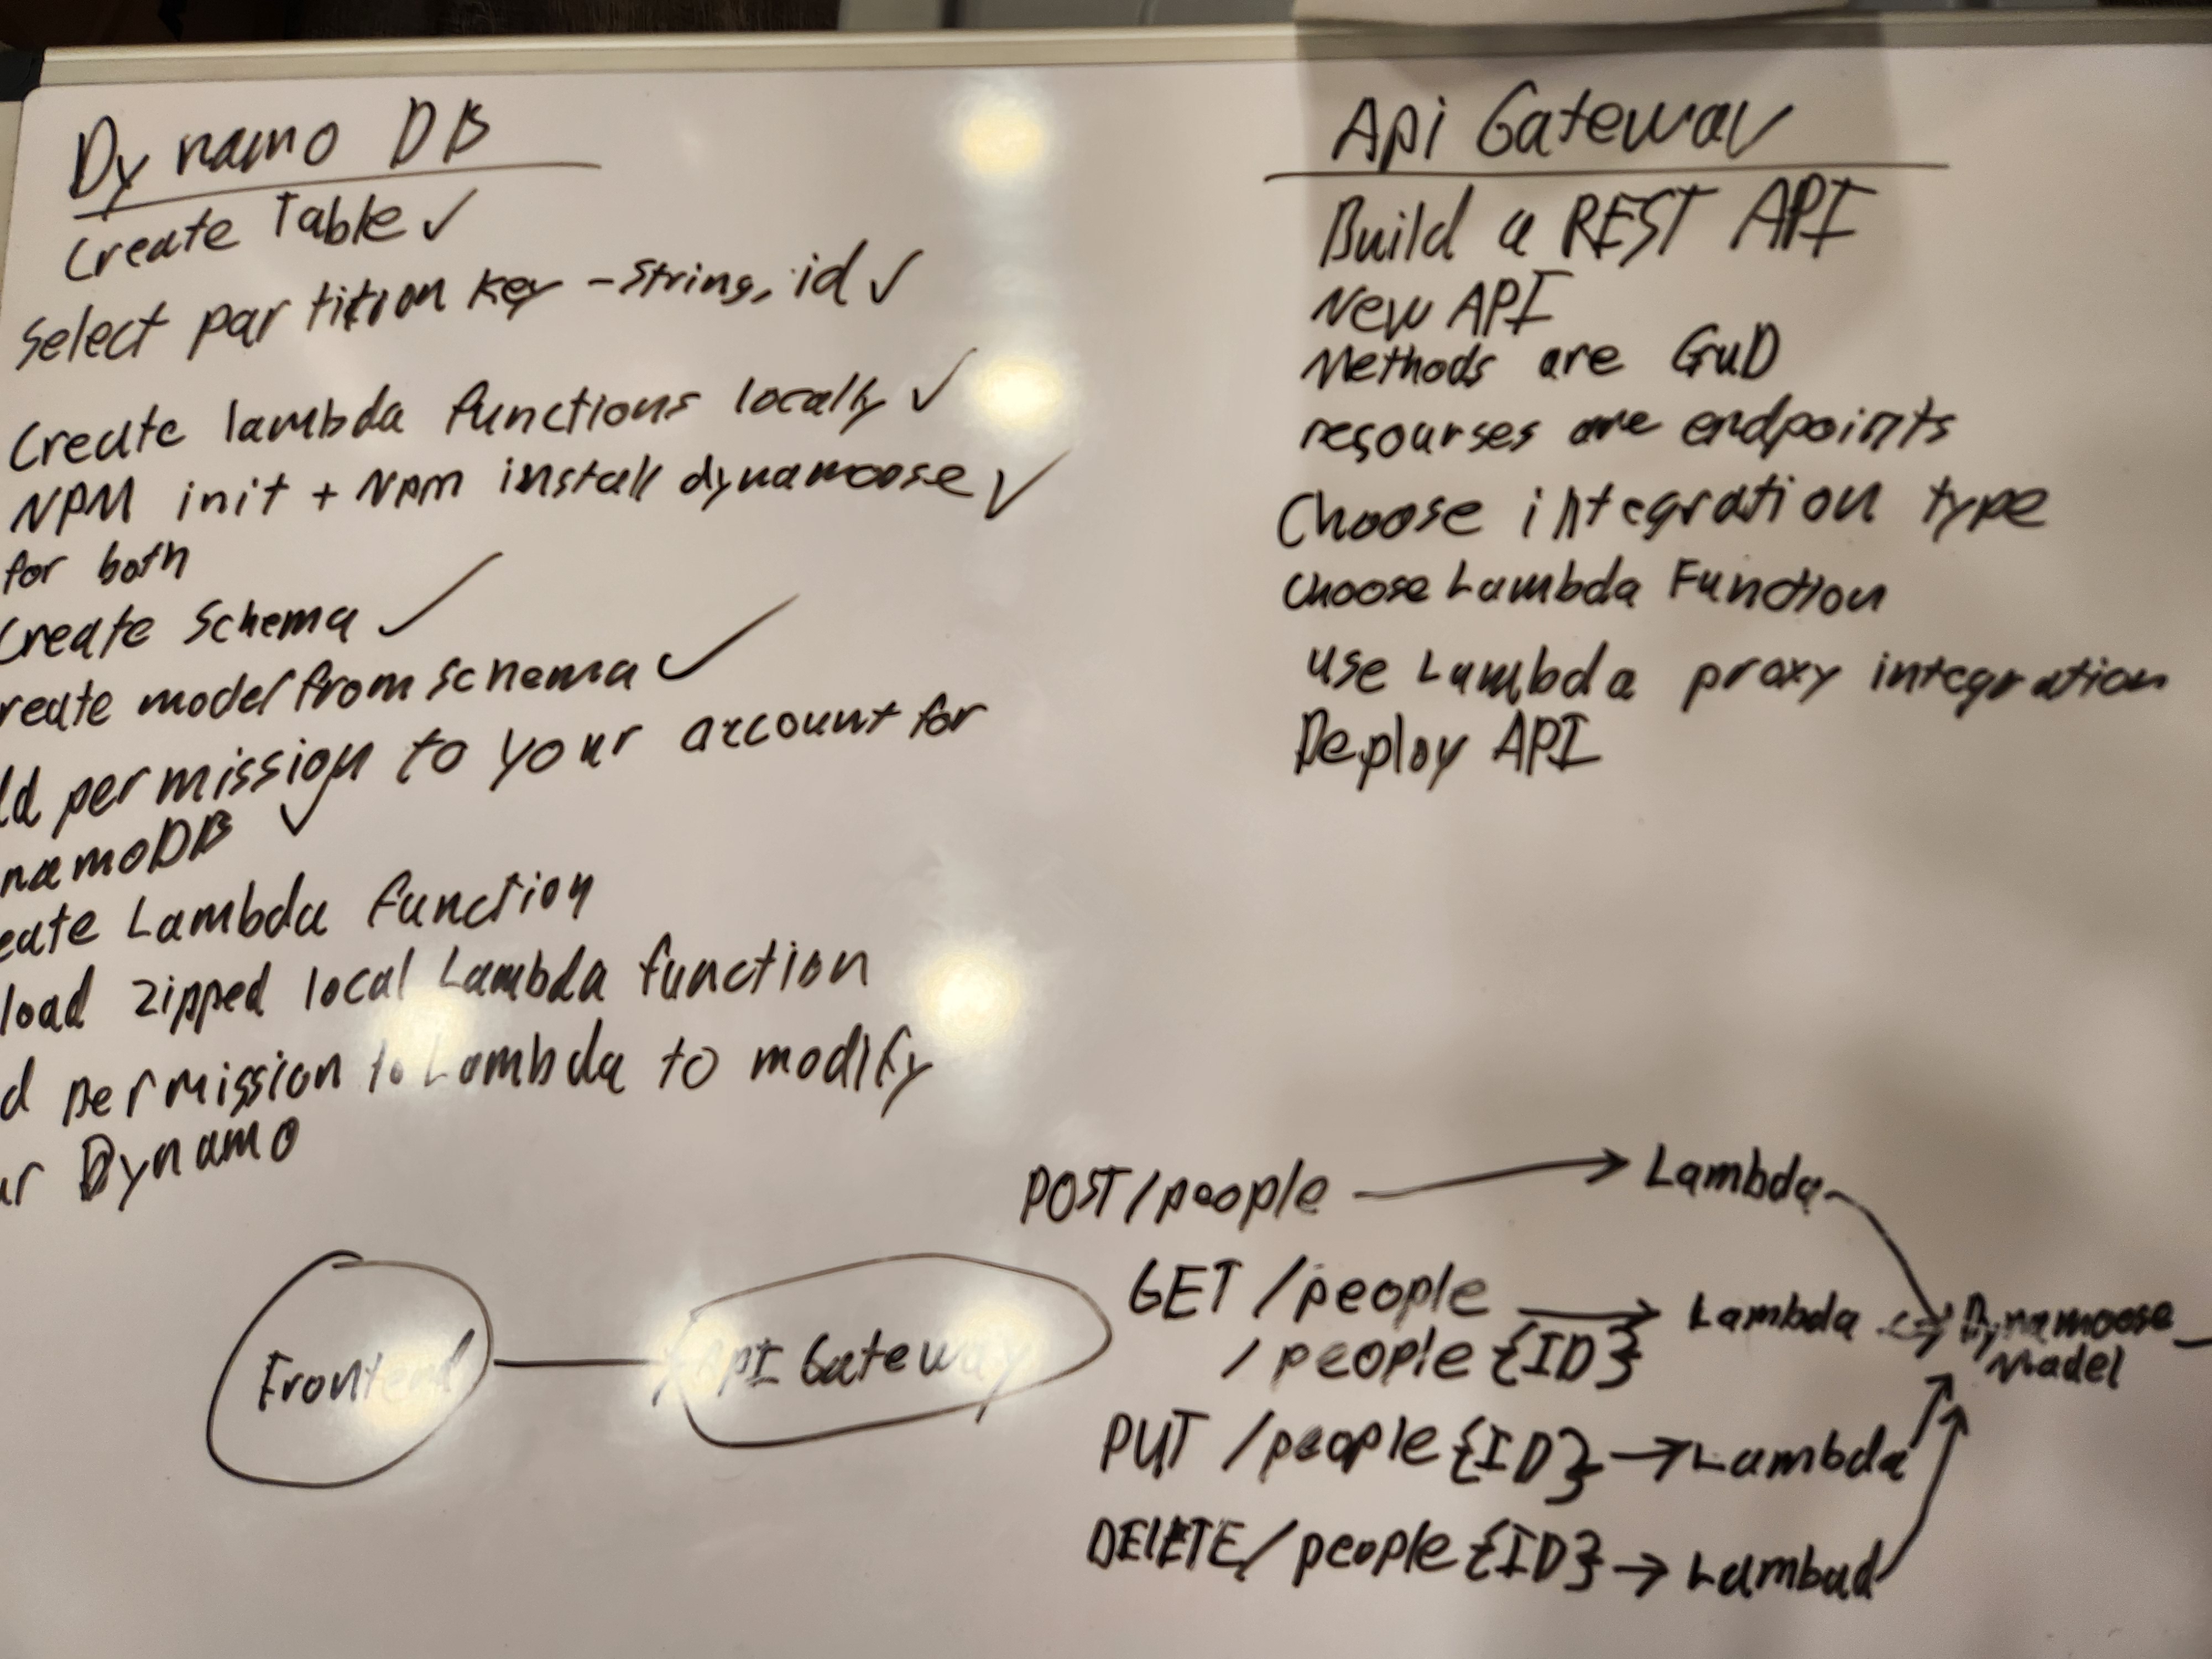 Dynamo DB
Create Table ✓
Select partition key - string, id ✓
Create lambda functions locally ✓
NPM init + NPM install dynamoose ✓
for both
Create schema ✓
reate model from schema ✓
ld permission to your account for
namoDB ✓
eate Lambda function
load zipped local Lambda function
d permission to Lambda to modify
ur Dynamo
API Gateway
Build a REST API
New API
Methods are CRUD
resourses are endpoints
Choose integration type
choose Lambda Function
use Lambda proxy integration
Deploy API
Frontend
API Gateway
POST /people → Lambda
GET /people
/people {ID} → Lambda → Dynamoose
Model
PUT /people {ID} → Lambda
DELETE /people {ID} → Lambad